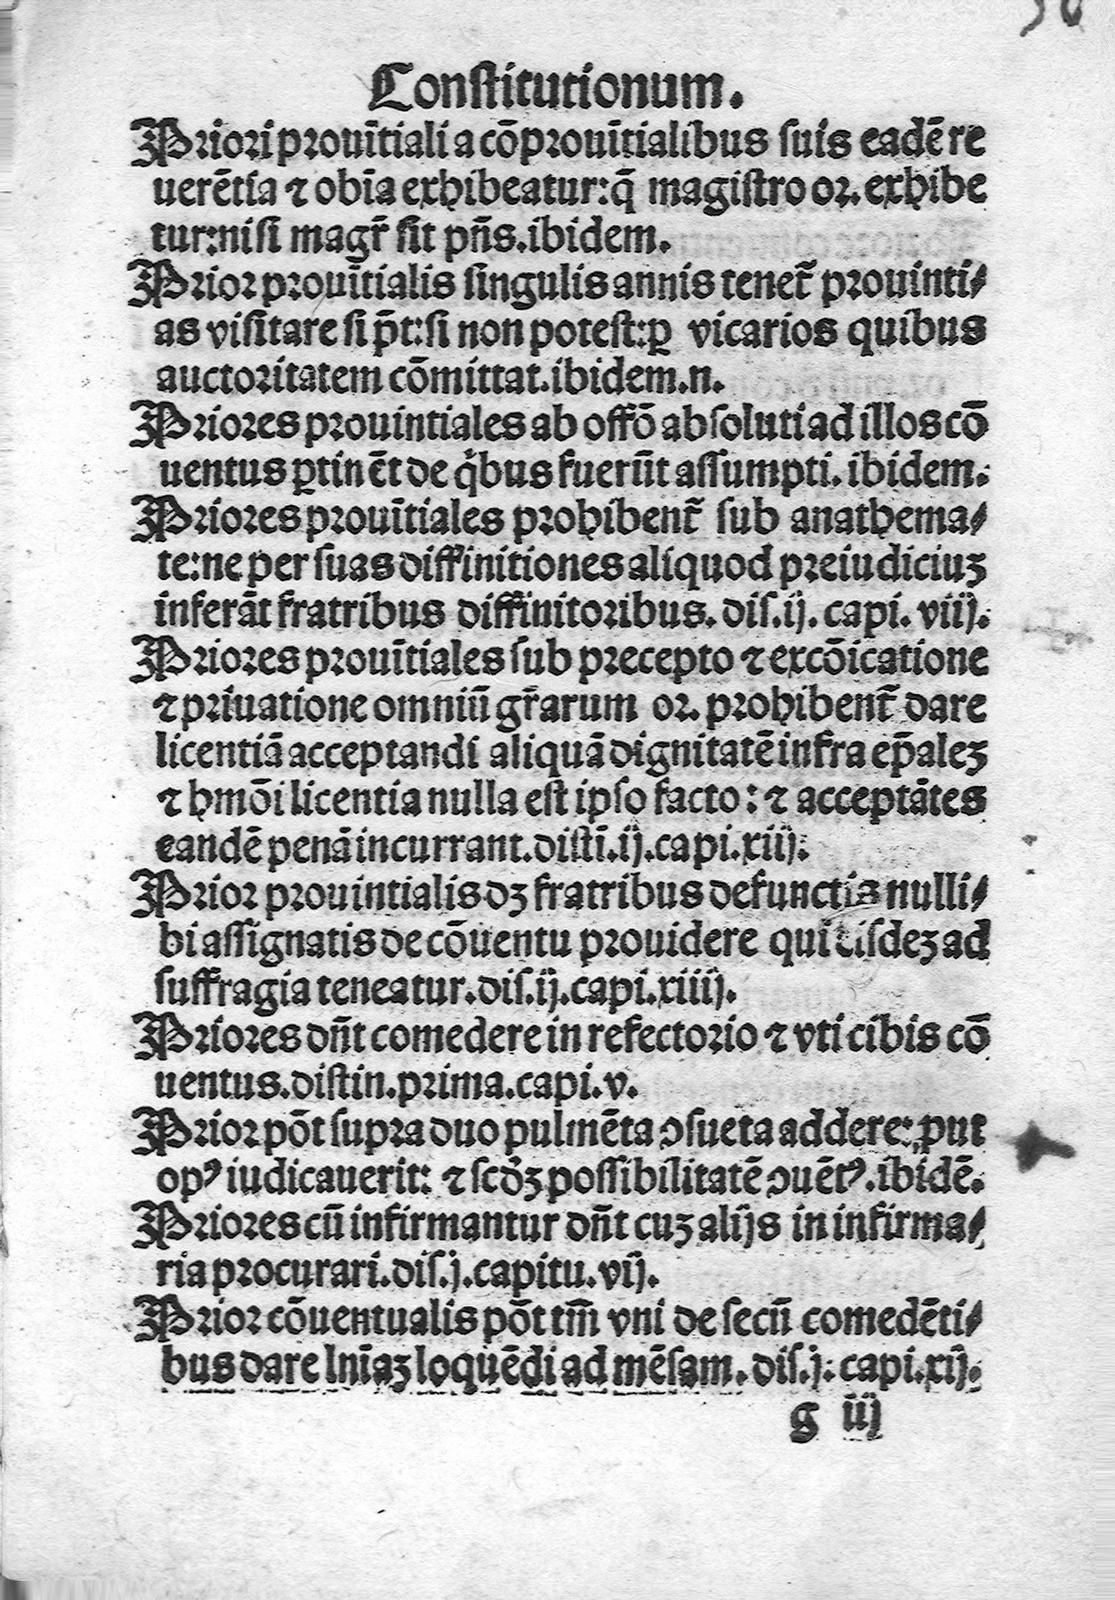 Constitutionum.
Priori prouĩtiali a cõprouĩtialibus suis eadẽ re
uerẽtia ⁊ obĩa exhibeatur:q̃ magistro or. exhibe
tur:nisi magr̃ sit pñs.ibidem.
Prior prouĩtialis singulis annis tenet᷑ prouinti⸗
as visitare si p̃t:si non potest:ꝑ vicarios quibus
auctoritatem cõmittat.ibidem.n.
Priores prouintiales ab offõ absoluti ad illos cõ
uentus ꝑtinẽt de q̍bus fuerũt assumpti. ibidem.
Priores prouĩtiales prohibent᷑ sub anathema⸗
te:ne per suas diffinitiones aliquod preiudiciuʒ
inferãt fratribus diffinitoribus. dis.ij. capi. viij.
Priores prouĩtiales sub precepto ⁊ excõicatione
⁊ priuatione omniũ gr̃arum or. prohibent᷑ dare
licentiã acceptandi aliquã dignitatẽ infra ep̃aleʒ
⁊ hmõi licentia nulla est ipso facto: ⁊ acceptãtes
eandẽ penã incurrant.distĩ.ij.capi.xiij.
Prior prouintialis dʒ fratribus defunctis nulli⸗
bi assignatis de cõuentu prouidere qui iisdeʒ ad
suffragia teneatur.dis.ij.capi.xiiij.
Priores dñt comedere in refectorio ⁊ vti cibis cõ
uentus.distin.prima.capi.v.
Prior põt supra duo pulmẽta ↄsueta addere: ꝓut
opꝰ iudicauerit: ⁊ scd̓ʒ possibilitatẽ ↄuẽtꝰ.ibidẽ.
Priores cũ infirmantur dñt cuʒ alijs in infirma⸗
ria procurari.dis.j.capitu.vij.
Prior cõuentualis põt tm̃ vni de secũ comedẽti⸗
bus dare lnĩaʒ loquẽdi ad mẽsam. dis.j. capi.xij.
g iij